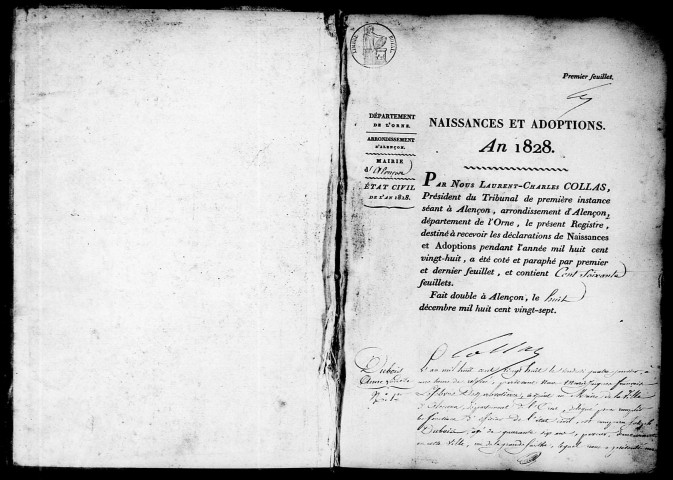 Premier feuillet.
DÉPARTEMENT
DE L'ORNE.
ARRONDISSEMENT
D'ALENÇON.
MAIRIE
d'Alençon
ÉTAT CIVIL
DE L'AN 1828.
NAISSANCES ET ADOPTIONS.
An 1828.
PAR NOUS LAURENT-CHARLES COLLAS,
Président du Tribunal de première instance
séant à Alençon, arrondissement d'Alençon,
département de l'Orne, le présent Registre,
destiné à recevoir les déclarations de Naissances
et Adoptions pendant l'année mil huit cent
vingt-huit, a été coté et paraphé par premier
et dernier feuillet, et contient Cent Soixante
feuillets.
Fait double à Alençon, le huit
décembre mil huit cent vingt-sept.
Collas
Dubois
L'an mil huit cent vingt huit le
Maire de la Ville
d'Alençon, département de l'Orne, pour remplir
les fonctions d'officier de l'état civil, est
Dubois, de quarante six ans,
en cette Ville, rue de la grande lequel nous a présenté